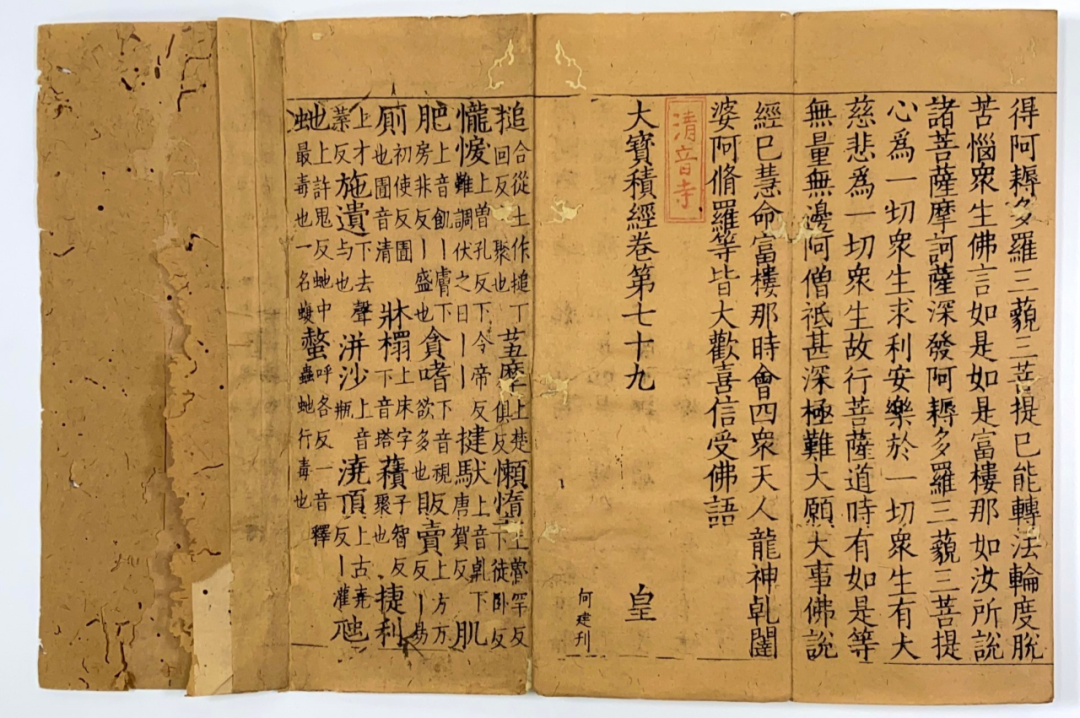 得阿耨多羅三藐三菩提已能轉法輪度脫
苦惱衆生佛言如是如是富樓那如汝所說
諸菩薩摩訶薩深發阿耨多羅三藐三菩提
心爲一切衆生求利安樂於一切衆生有大
慈悲爲一切衆生故行菩薩道時有如是等
無量無邊阿僧祇甚深極難大願大事佛說
經已慧命富樓那時會四衆天人龍神乹闥
婆阿脩羅等皆大歡喜信受佛語
清音寺
大寶積經卷第七十九 皇
何建刊
搥合從土作搥丁回反聚也 摩上楚俱反 懶惰上魯罕反下徒卧反
悷上曽孔反下令帝反難調伏之曰丨丨 揵馱上音下唐賀反 肌
肥上音飢丨膚下房非反丨盛也 貪嗜下音視欲多也 販賣上方万反丨易
厠初使反圊也圊音清 牀榻上床字下音塔 積子智反聚也 捷利
上才葉反 施遺下去聲与也 洴沙上音瓶 澆頂上古堯反丨灌 虺
虵上許鬼反虵中最毒也一名蝮 螫呼各反一音釋蟲虵行毒也